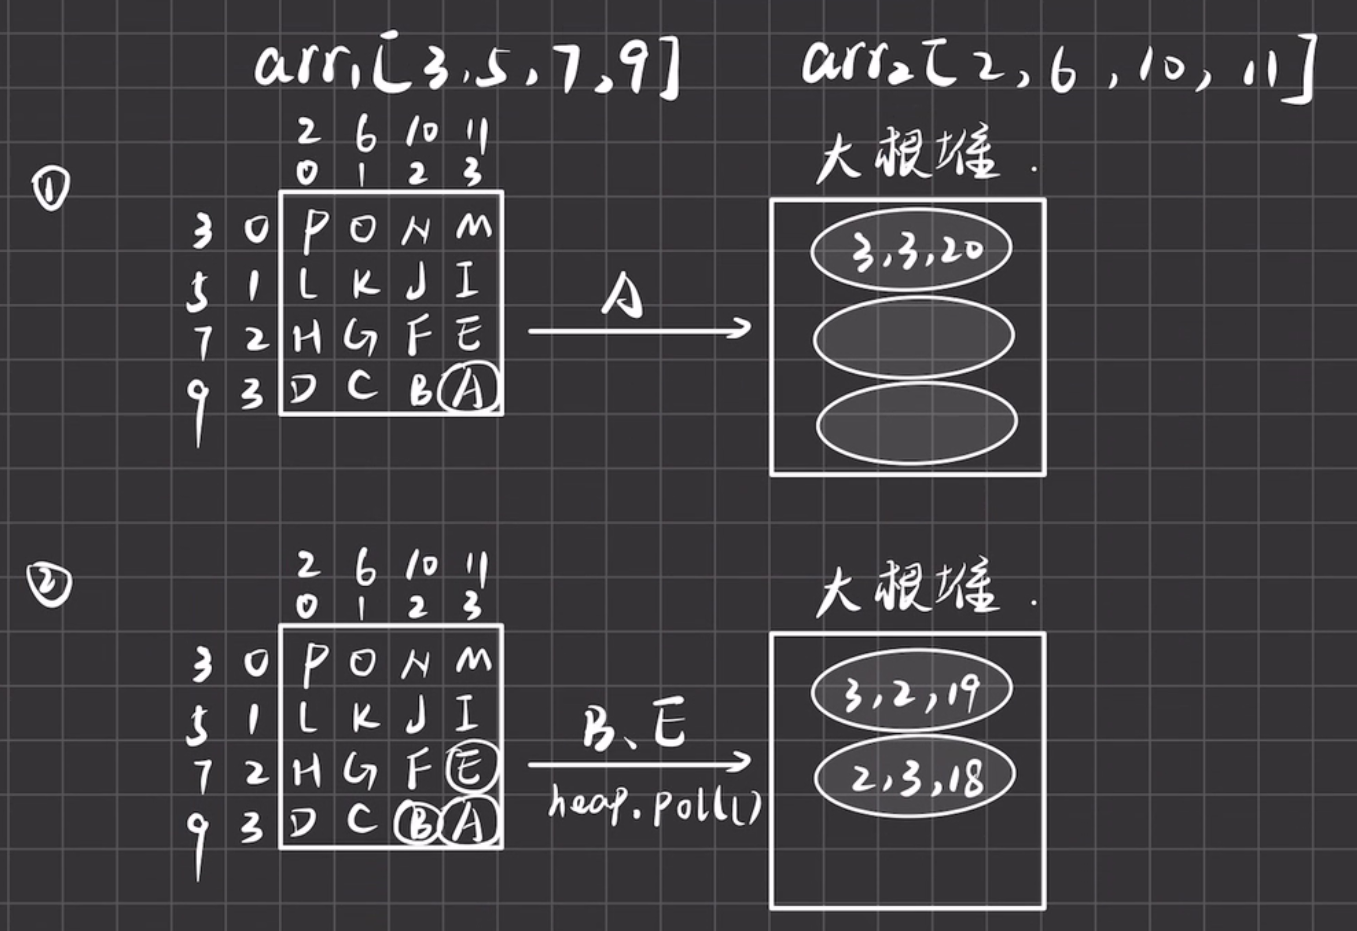 arr₁[3,5,7,9] arr₂[2,6,10,11]
2 6 10 11
0 1 2 3
大根堆.
①
3 0 P O N M
5 1 L K J I
7 2 H G F E
9 3 D C B A
A
3,3,20
2 6 10 11
0 1 2 3
大根堆.
②
3 0 P O N M
5 1 L K J I
7 2 H G F E
9 3 D C B A
B、E
heap.poll()
3,2,19
2,3,18